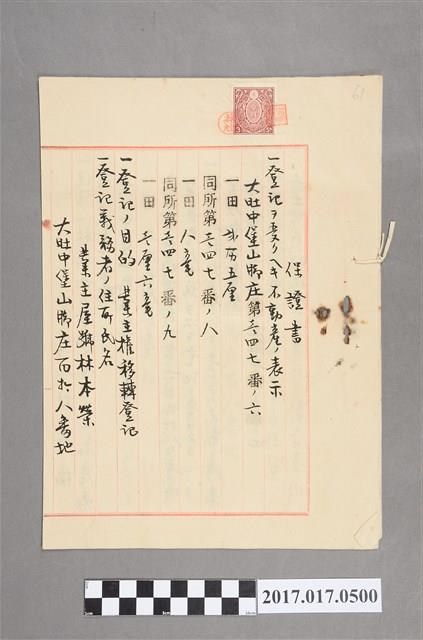 61
保證書
一登記ヲ受クヘキ不動産ノ表示
大肚中堡山脚庄第三四七番ノ六
一田 貳分五厘
同所第三四七番ノ八
一田 八毫
同所第三四七番ノ九
一田 壱厘六毫
一登記ノ目的 業主權移轉登記
一登記義務者ノ住所氏名
業主 林本榮
大肚中堡山脚庄百拾八番地
2017.017.0500